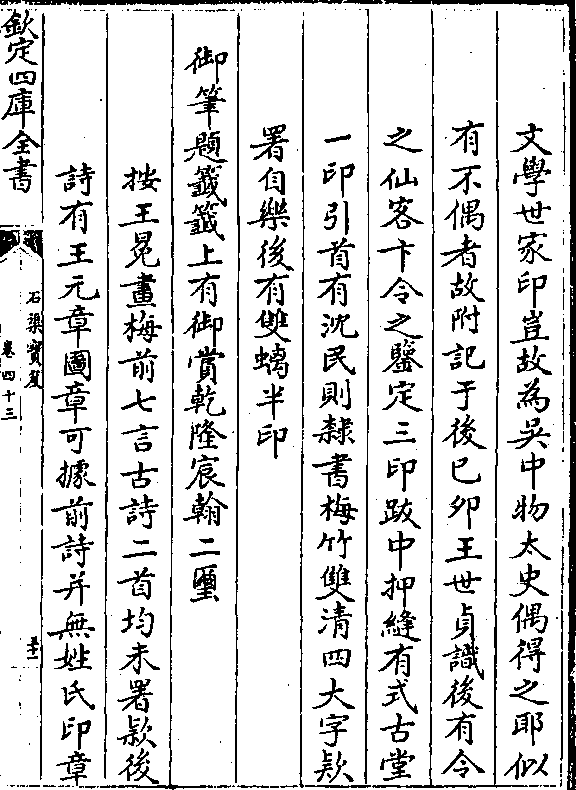 文學世家印豈故為吳中物太史偶得之耶似
有不偶者故附記于後已夘王世貞識後有令
之仙客卞令之鑒定三印䟦中押縫有式古堂
一印引首有沈民則隸書梅竹雙清四大字欵
署自樂後有雙螭半印
御筆題籤籤上有御賞乾隆宸翰二璽
按王冕畫梅前七言古詩二首均未署欵後
詩有王元章圖章可據前詩并無姓氏印章
欽定四庫全書
石渠寳笈
卷四十三